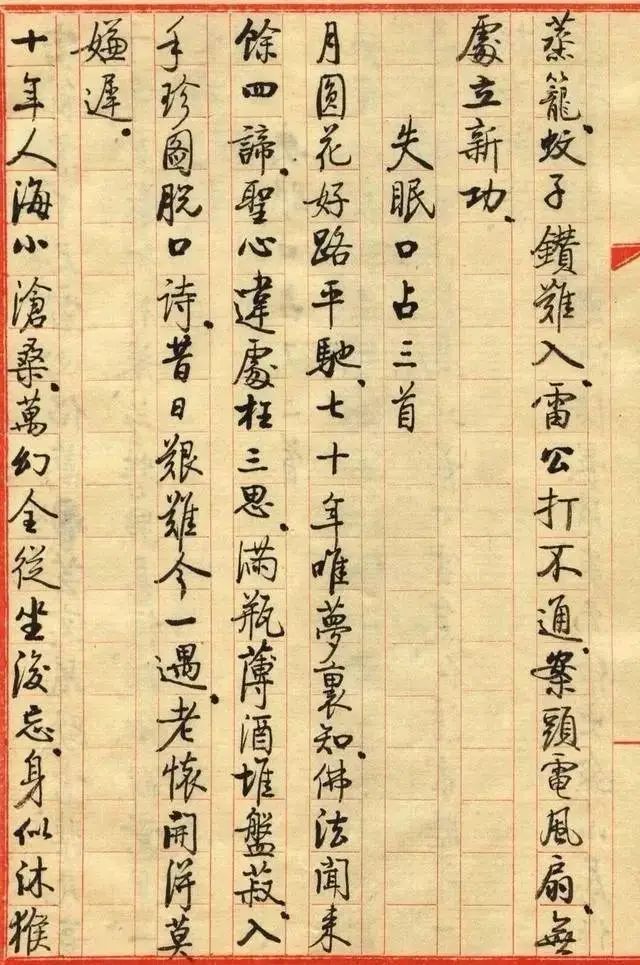 蒸籠、蚊子鑽難入、雷公打不通、案頭電風扇、無
處立新功、
失眠口占三首
月圓花好路平馳、七十年唯夢裏知、佛法聞来
餘四諦、聖心違處枉三思、滿瓶薄酒堆盤菽、入
手珍圖脱口詩、昔日艱難今一遇、老懷開得莫
嫌遲、
十年人海小滄桑、萬幻全從坐後忘、身似沐猴